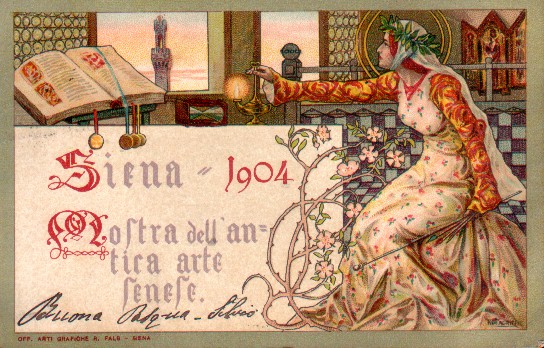 Siena - 1904
Mostra dell'an-
tica arte
senese.
Buona Pasqua - Silvio
OFF. ARTI GRAFICHE A. FALB - SIENA